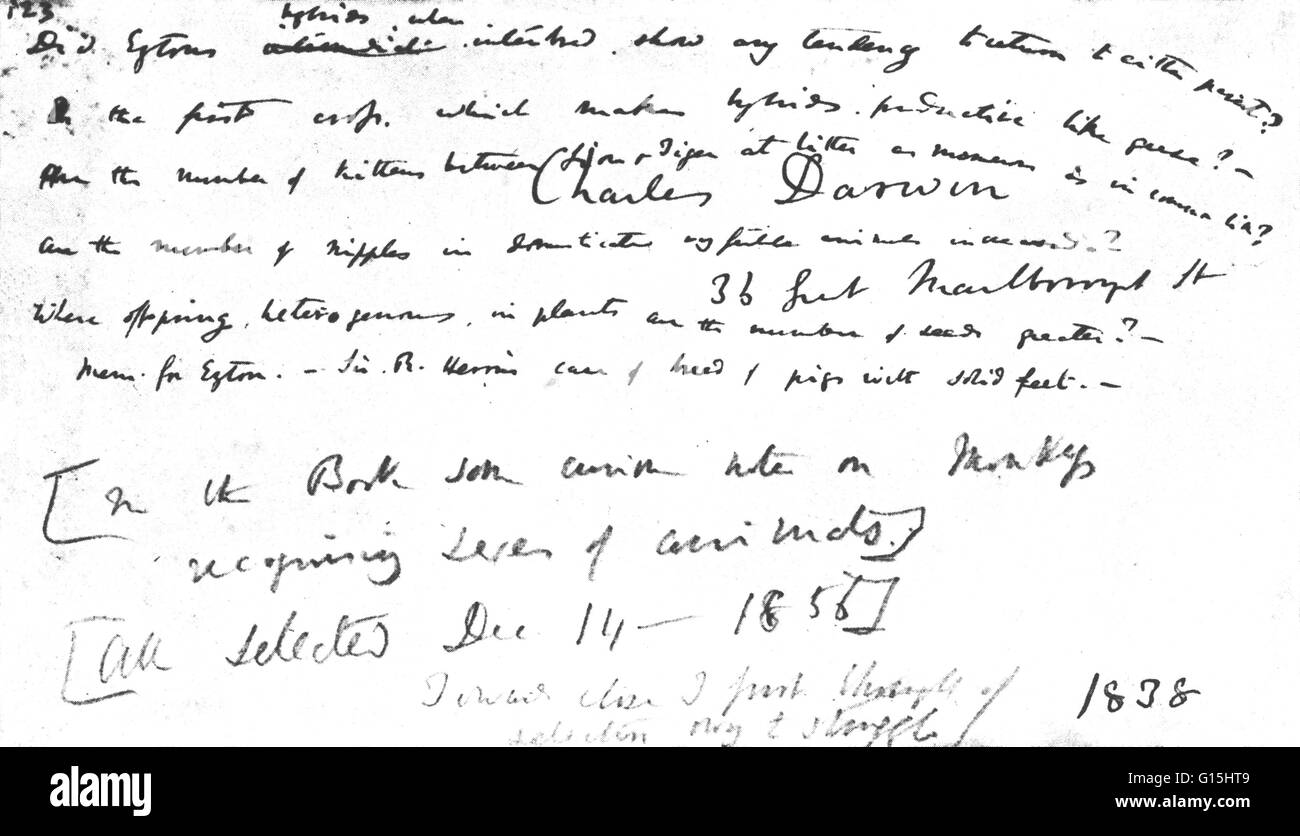 123
hybrids, when
Did Eytons intermediate interbred, show any tendency to return to either parent?
Is the first cross, which makes hybrids, productive like geese? —
Are the number of kittens between Lion & Tiger at litter as numerous as in common lion?
Charles Darwin
are the number of nipples in domesticated animals increased?
36 Great Marlborough St
Where offspring, heterogenous, in plants are the number of seeds greater? —
Mem. for Eyton. — Sir. R. Heron's case of breed of pigs with solid feet. —
[In the Book some curious notes on Monkeys
recognising sexes of animals.]
[All selected Dec 14 — 1856]
Towards close I first thought of
selection owing to struggle
1838
alamy
a
a
alamy
Image ID: G15HT9
www.alamy.com